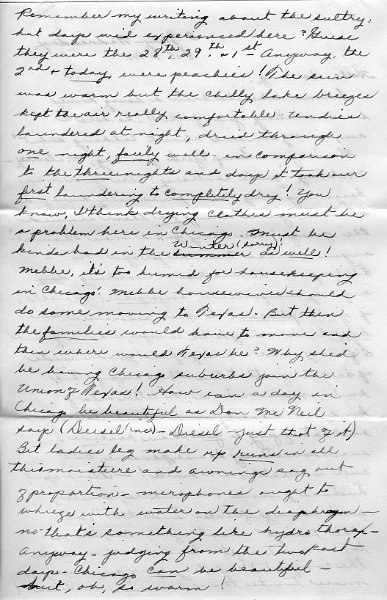 Remember my writing about the sultry,
hot days we'd experienced here? Guess
they were the 28th, 29th, & 1st - Anyway, the
2nd & today were peachies! The sun
was warm but the chilly lake breezes
kept the air really comfortable. Undies
laundered at night, dried through
one night, fairly well in comparison
to the three nights and days it took our
first laundering to completely dry! You
know, I think drying clothes must be
a problem here in Chicago. Must be
kinda bad in the summer Winter (sorry)! as well!
Mebbe, it's too humid for housekeeping
in Chicago! Mebbe housewives should
do some moving to Texas. But then
the families would have to move and
then where would Texas be? Why she'd
be having Chicago suburbs join the
Union of Texas! How can a day in
Chicag be beautiful as Don Mc Neil
says (Deisel iner - Diesel - just that of it)
But ladies leg make up runs in all
this moisture and awnings sag out
of proportion - microphones ought to
wheeze with water on the diaphragm -
no that's something like hydro thorax -
Anyway - judging from the two past
days - Chicago can be beautiful -
but, oh, so warm!